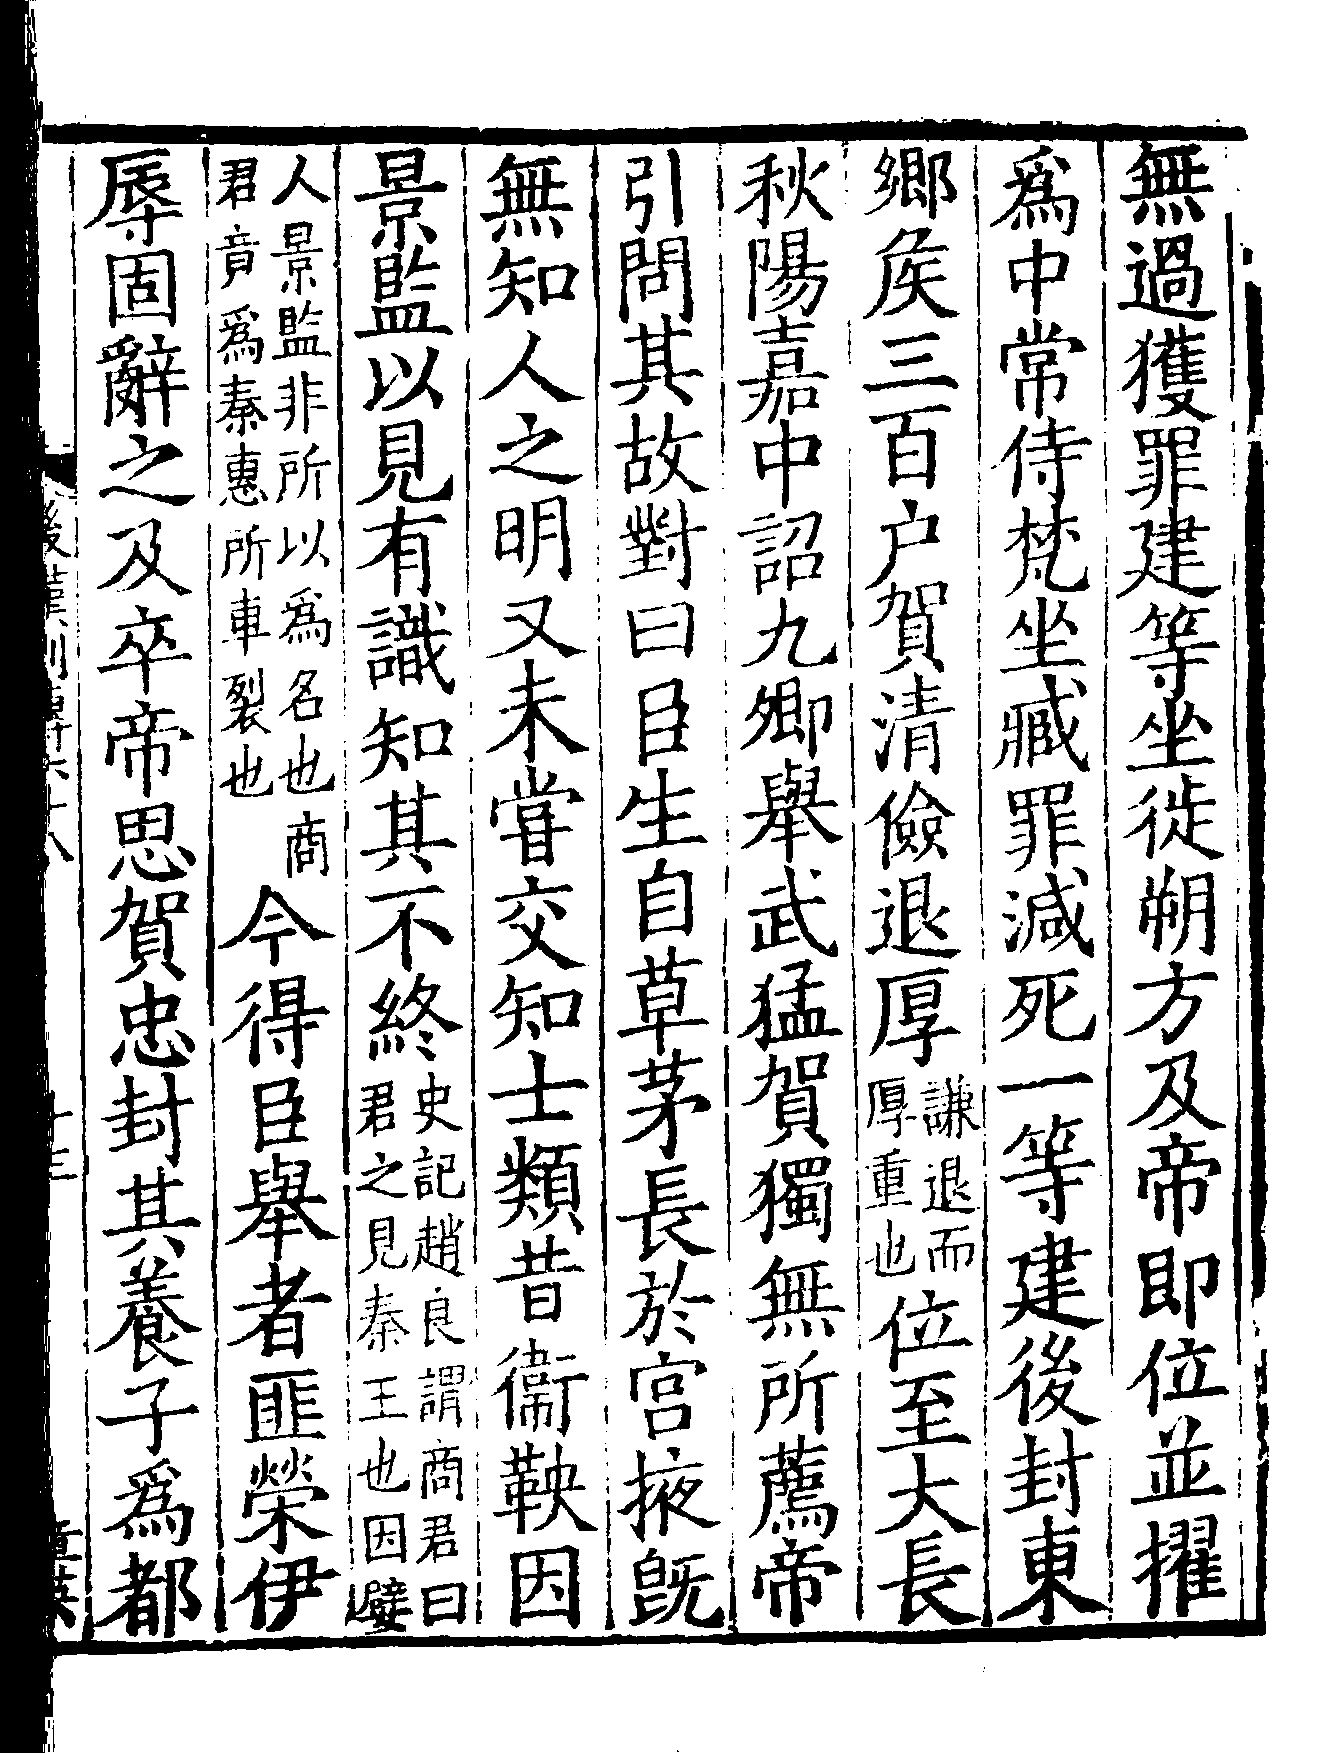 無過獲罪建等坐徙朔方及帝即位並擢
爲中常侍梵坐臧罪減死一等建後封東
鄉矦三百户賀清儉退厚謙退而厚重也位至大長
秋陽嘉中詔九卿舉武猛賀獨無所薦帝
引問其故對曰臣生自草茅長於宫掖旣
無知人之明又未嘗交知士類昔衞鞅因
景監以見有識知其不終史記趙良謂商君曰君之見秦王也因嬖
人景監非所以爲名也商君竟爲秦惠所車裂也今得臣舉者匪榮伊
辱固辭之及卒帝思賀忠封其養子爲都
後漢列傳六十八 十三